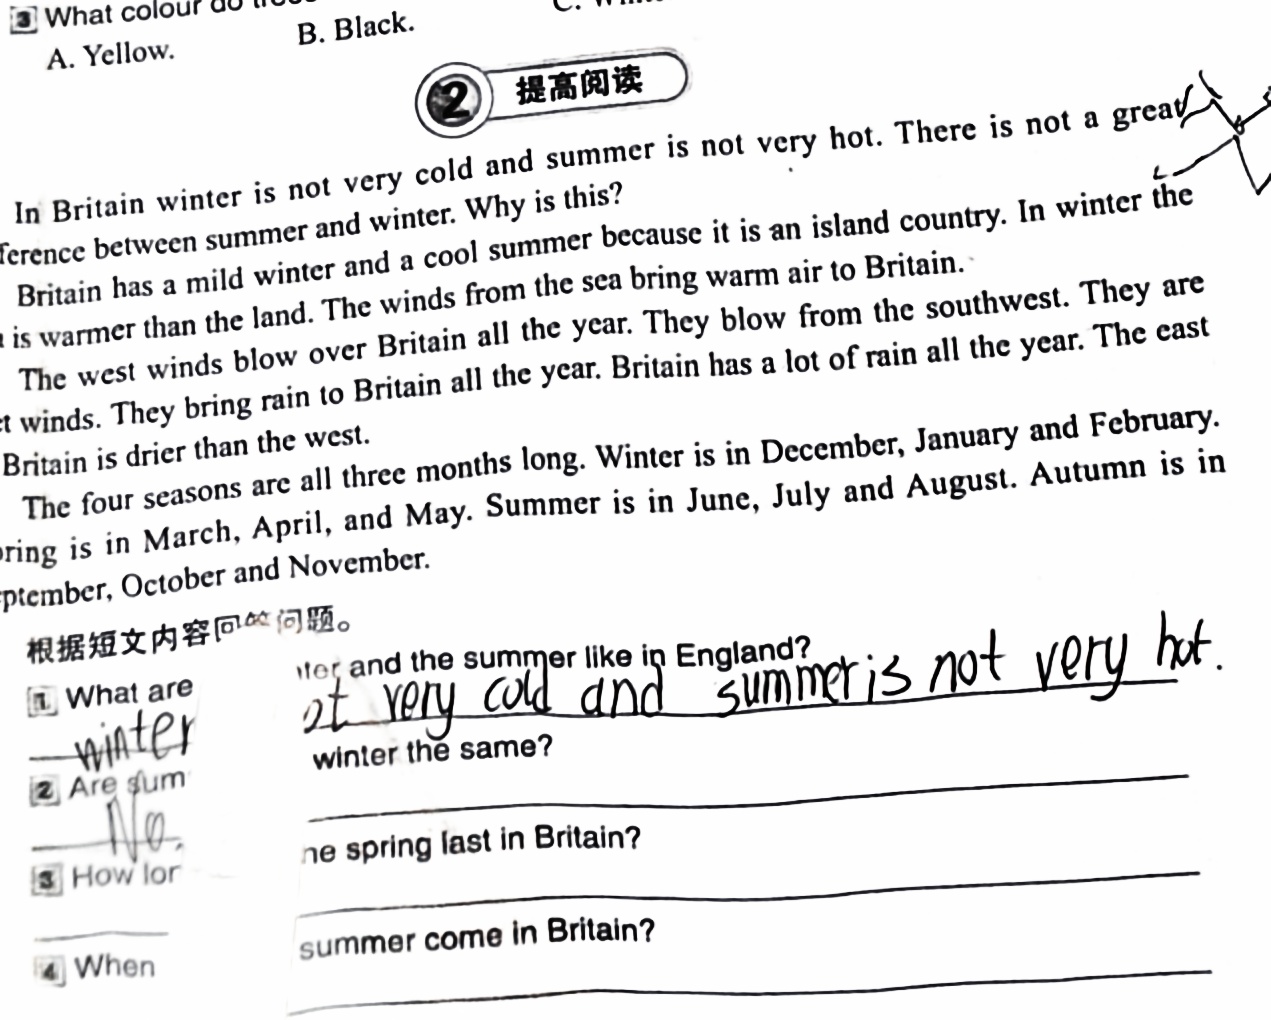 3 What colour do
A. Yellow.
B. Black.
C.
2 提高阅读
In Britain winter is not very cold and summer is not very hot. There is not a great
ference between summer and winter. Why is this?
Britain has a mild winter and a cool summer because it is an island country. In winter the
is warmer than the land. The winds from the sea bring warm air to Britain.
The west winds blow over Britain all the year. They blow from the southwest. They are
t winds. They bring rain to Britain all the year. Britain has a lot of rain all the year. The east
Britain is drier than the west.
The four seasons are all three months long. Winter is in December, January and February.
ring is in March, April, and May. Summer is in June, July and August. Autumn is in
ptember, October and November.
根据短文内容回答问题。
1 What are ter and the summer like in England?
winter ot very cold and summer is not very hot.
2 Are sum winter the same?
No.
3 How lor he spring last in Britain?
4 When summer come in Britain?